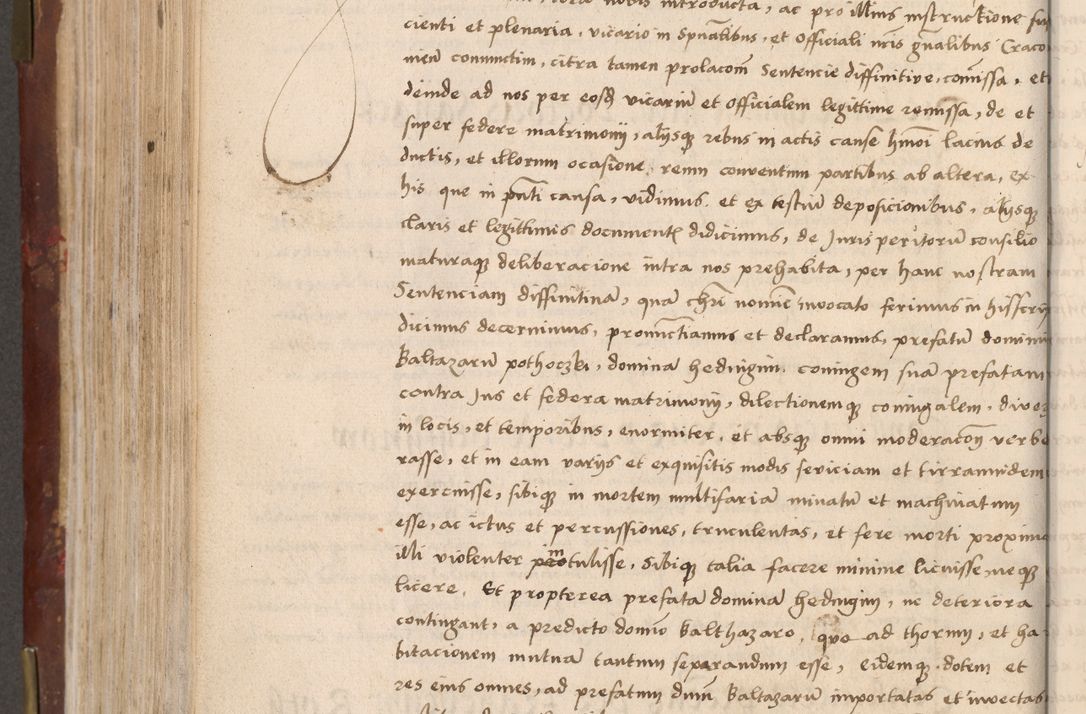 nobis introducta, ac pro illius instructione suf
cienti et plenaria, vicario in spūalibus, et officiali nris gnālibus Craco
nien̄ coniunctim, citra tamen prolacoēm Sentencie diffinitive, comīssa, et
deinde ad nos per eosdē vicariū et officialem legittime remissa, de et
super federe matrimonij, alijsq̨ rebus in actis cause hmōi lacius de
ductis, et illorum ocasione, reum conventum partibus ab altera, ex
his que in pnti causa, vidimus, et ex testiū deposicionibus, alijsq̨
claris et legittimis documentꝭ didicimus, de Juris peritorū consilio
maturaq̨ deliberacione intra nos prehabita, per hanc nostram
Sentenciam diffinitivā, quā chrī nomīe invocato ferimus in his scrip
dicimus decernimus, pronūctiamus et declaramus, prefatū dominū
Baltazarū pothoczki, dominā hedvigim, coniugem suā prefatam
contra Jus et federa matrimonij, dilectionemq̨ coniugalem, diver
in locis, et temporibus, enormiter, et absq̨ omni moderacoē verbe
rasse, et in eam varijs et exquisitis modis seviciam et tirrannidem
exercuisse, sibiq̨ in mortem multifariā minatū et machinatum
esse, ac ictus et percussiones, truculentas, et fere morti proximas
illi violenter intulisse, Sibiq̨ talia facere minime licuisse, neq̨
licere, Et propterea prefatā dominā hedvigim, ne deteriora
contingant, a predicto domīo Balthazaro, quo ad thorum, et ha
bitacionem mutuā tantum separandum esse, eidemq̨ dotem et
res eius omnes, ad prefatum dnūm Baltazarū importatas et invectas